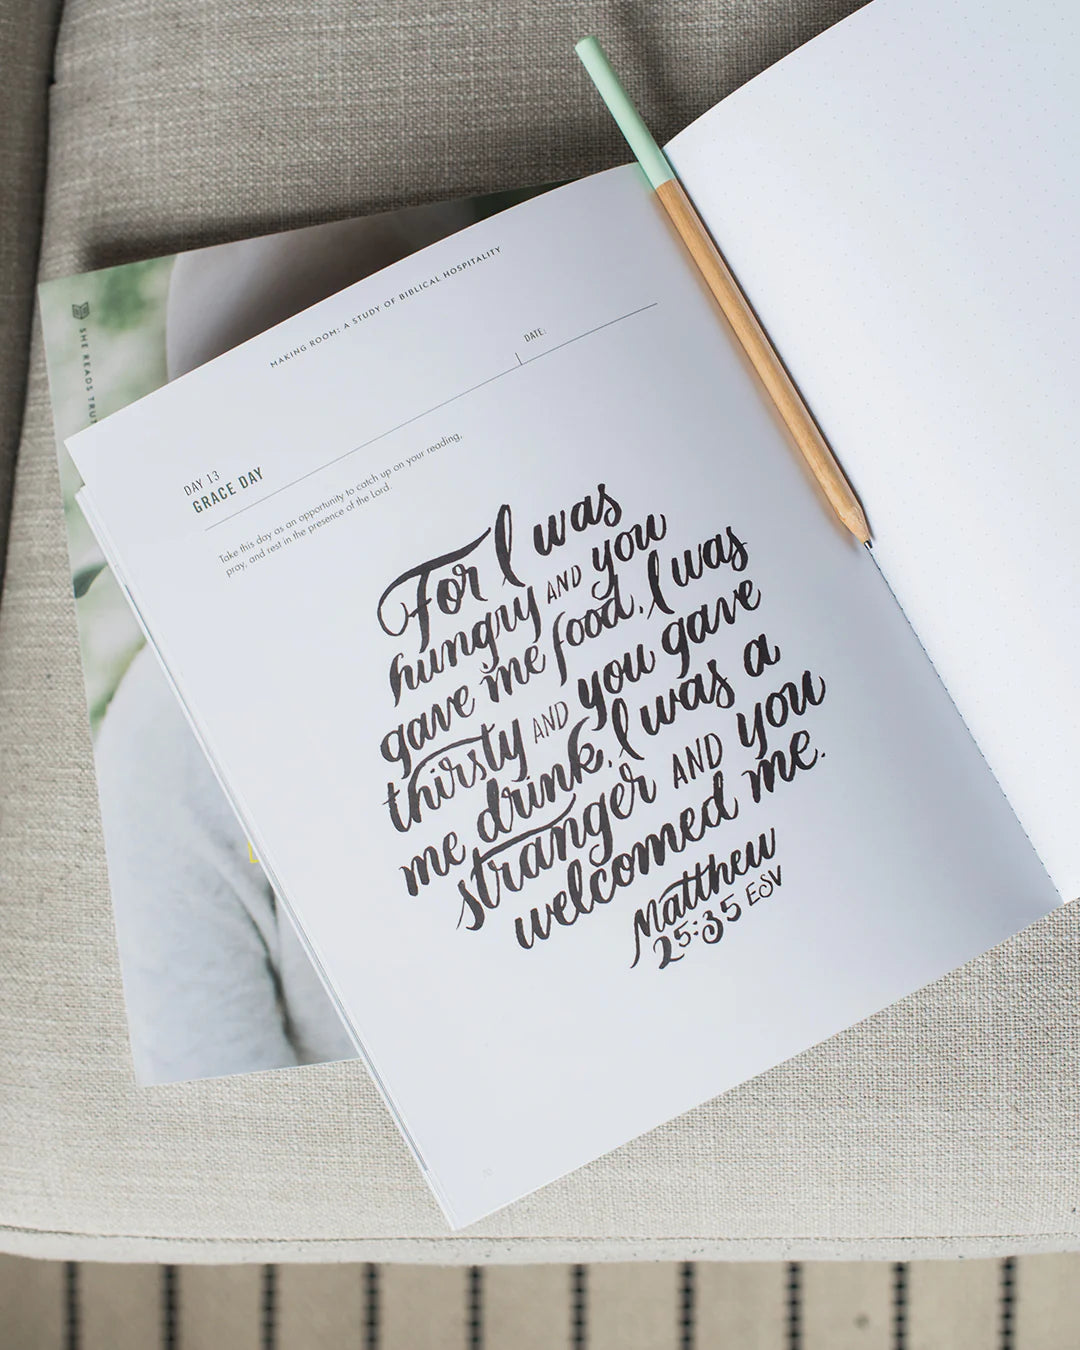 SHE READS TRUT
MAKING ROOM: A STUDY OF BIBLICAL HOSPITALITY
DATE:
DAY 13
GRACE DAY
Take this day as an opportunity to catch up on your reading,
pray, and rest in the presence of the Lord.
For I was
hungry AND you
gave me food, I was
thirsty AND you gave
me drink, I was a
stranger AND you
welcomed me.
Matthew
25:35 ESV